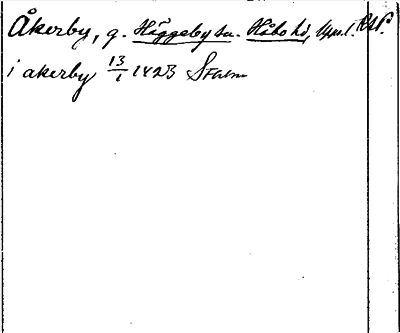 Åkerby, g. Häggeby sn. Håbo hd, Upps. l.
i akerby 13/1 1423